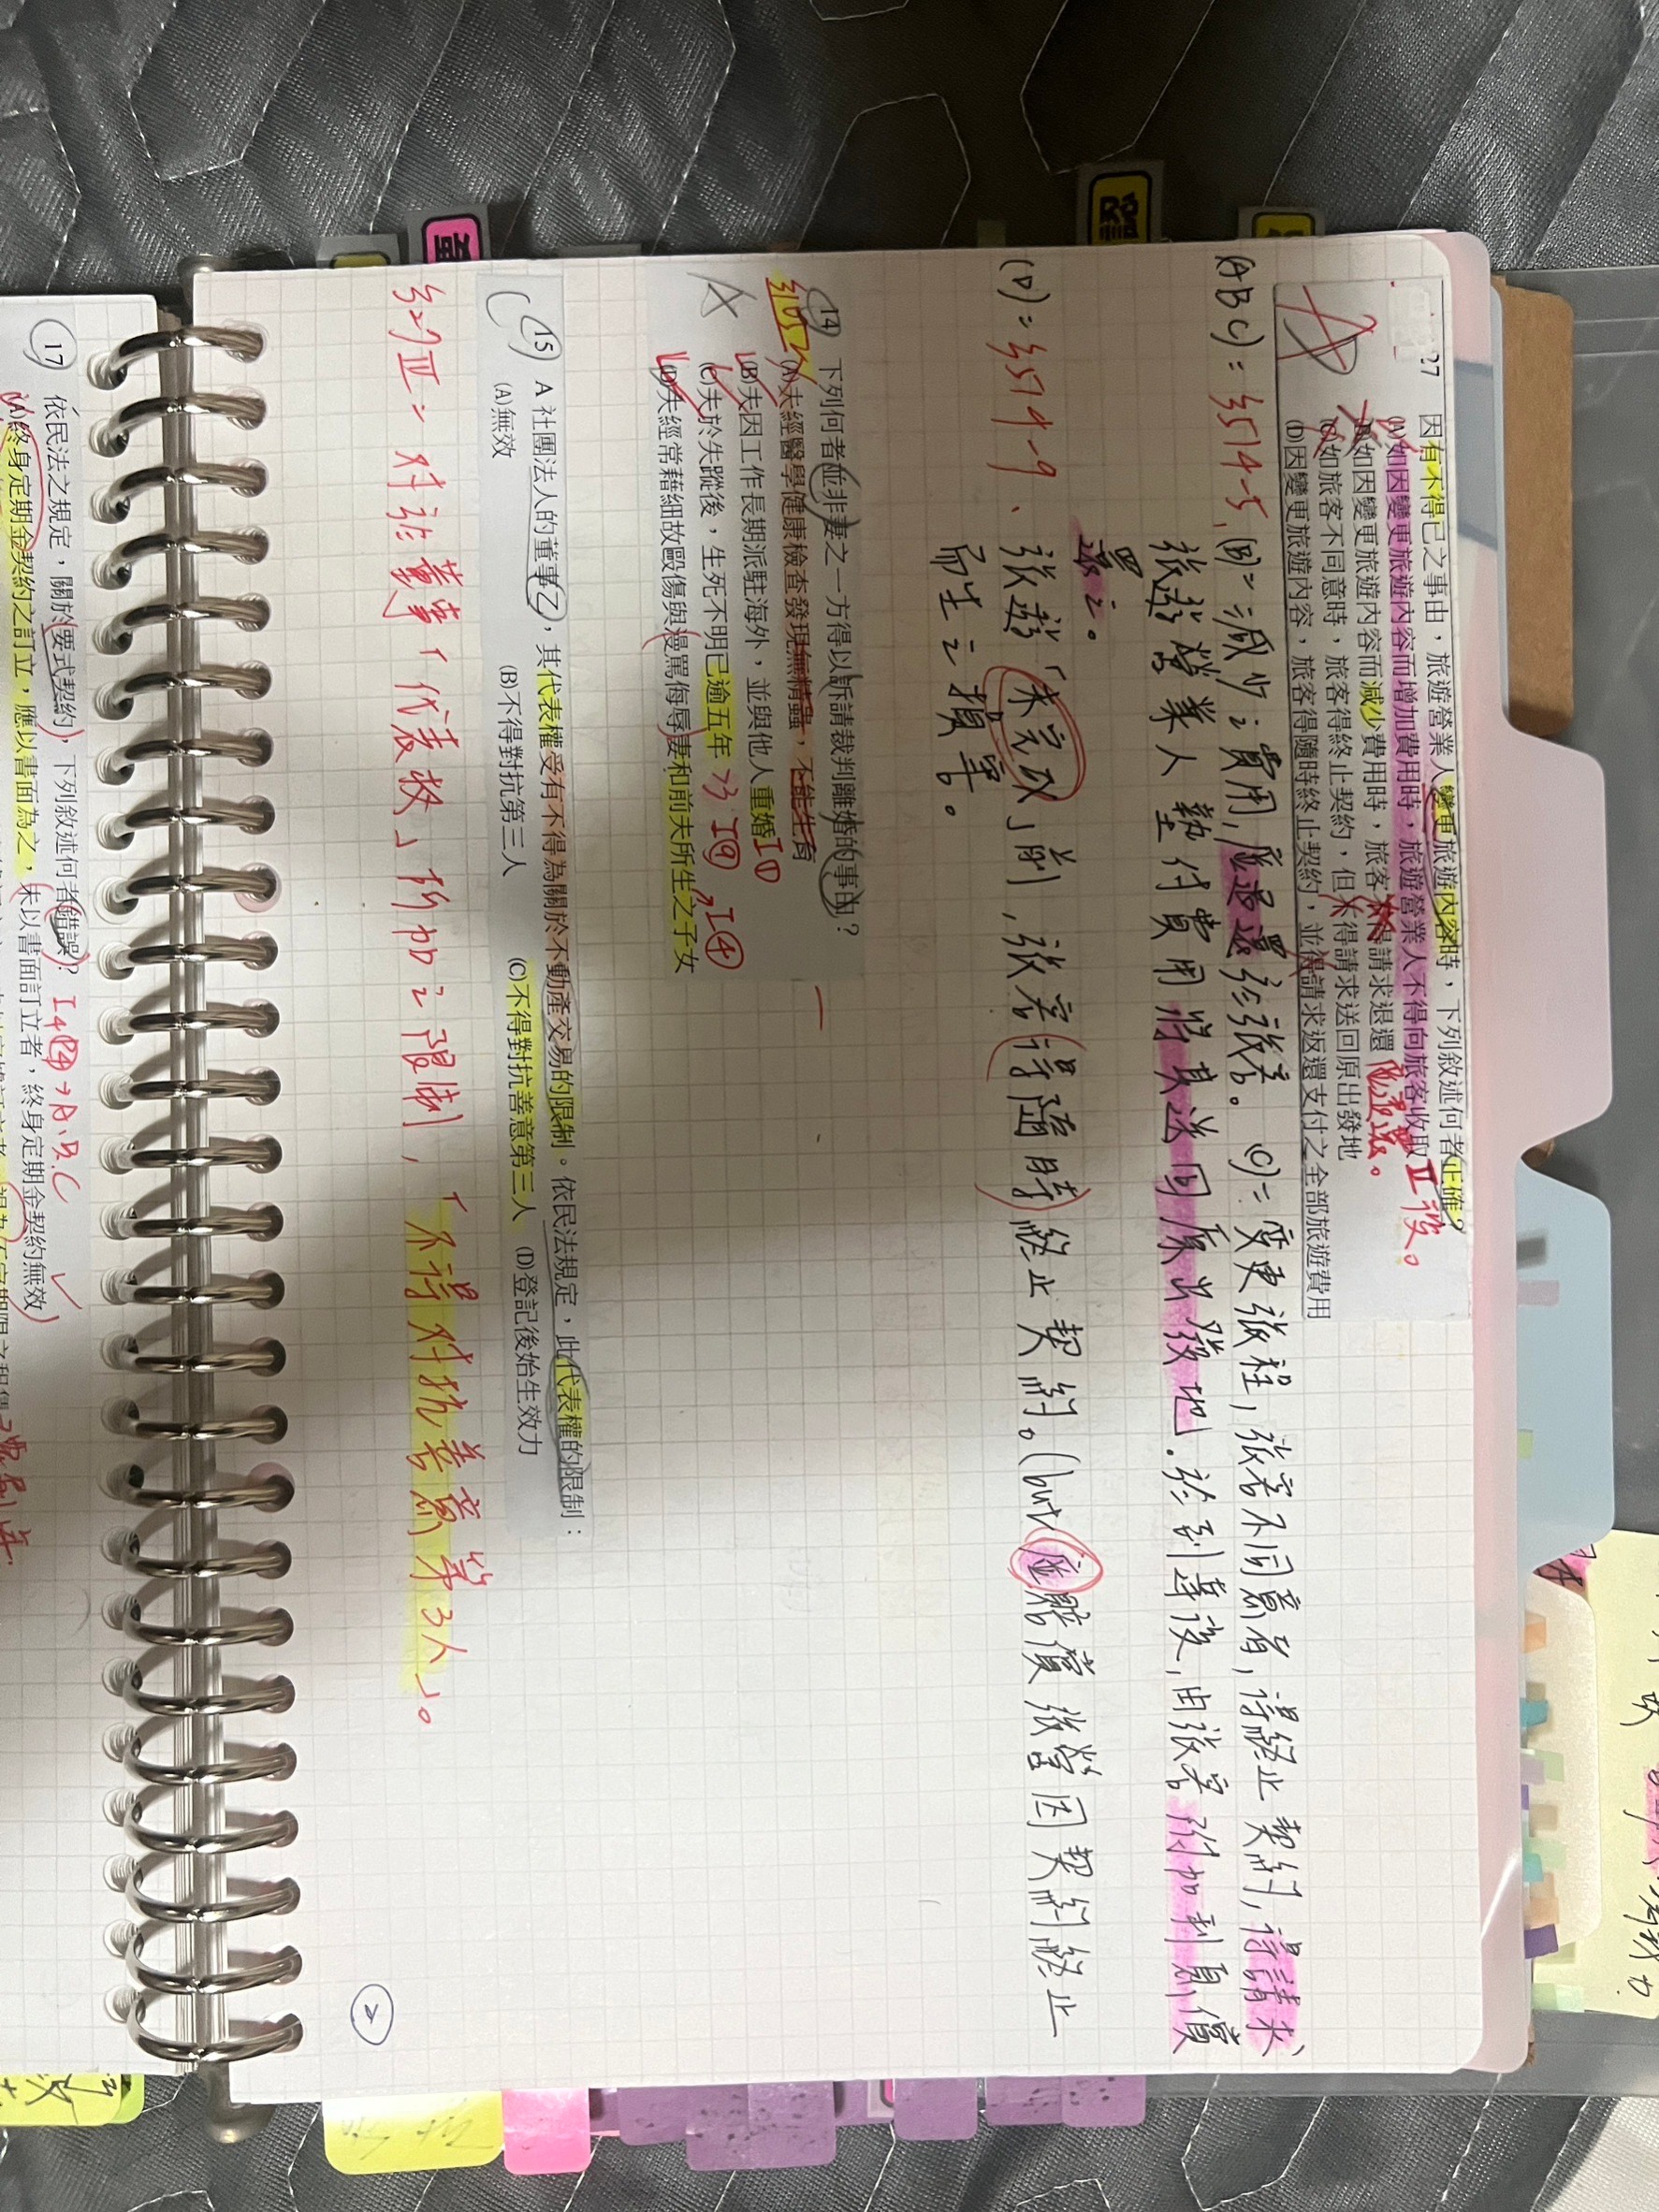 27 因有不得已之事由,旅遊營業人變更旅遊內容時,下列敘述何者正確?
(A)如因變更旅遊內容而增加費用時,旅遊營業人不得向旅客收取 II 後。
(B)如因變更旅遊內容而減少費用時,旅客不得請求退還 應退還。
(C)如旅客不同意時,旅客得終止契約,但不得請求送回原出發地
(D)因變更旅遊內容,旅客得隨時終止契約,並得請求返還支付之全部旅遊費用
(ABC)=§514-5、(B)=減少之費用,應退還於旅客。 (C)=變更旅程,旅客不同意者,得終止契約,得請求
旅遊營業人墊付費用將其送回原出發地.於到達後,由旅客附加利息償
還之。
(D)=§514-9、旅遊「未完成」前,旅客得隨時終止契約。(but應賠償旅營因契約終止
而生之損害。
14 下列何者並非妻之一方得以訴請裁判離婚的事由?
(A)夫經醫學健康檢查發現無精蟲,不能生育
(B)夫因工作長期派駐海外,並與他人重婚 I①
(C)夫於失蹤後,生死不明已逾五年 → I⑨
(D)夫經常藉細故毆傷與漫罵侮辱妻和前夫所生之子女 I④
15 A 社團法人的董事乙,其代表權受有不得為關於不動產交易的限制。依民法規定,此代表權的限制:
(A)無效 (B)不得對抗第三人 (C)不得對抗善意第三人 (D)登記後始生效力
§27 IV=對於董事「代表權」所加之限制,「不得對抗善意第3人」。
2
17 依民法之規定,關於要式契約,下列敘述何者錯誤?
(A)終身定期金契約之訂立,應以書面為之,未以書面訂立者,終身定期金契約無效